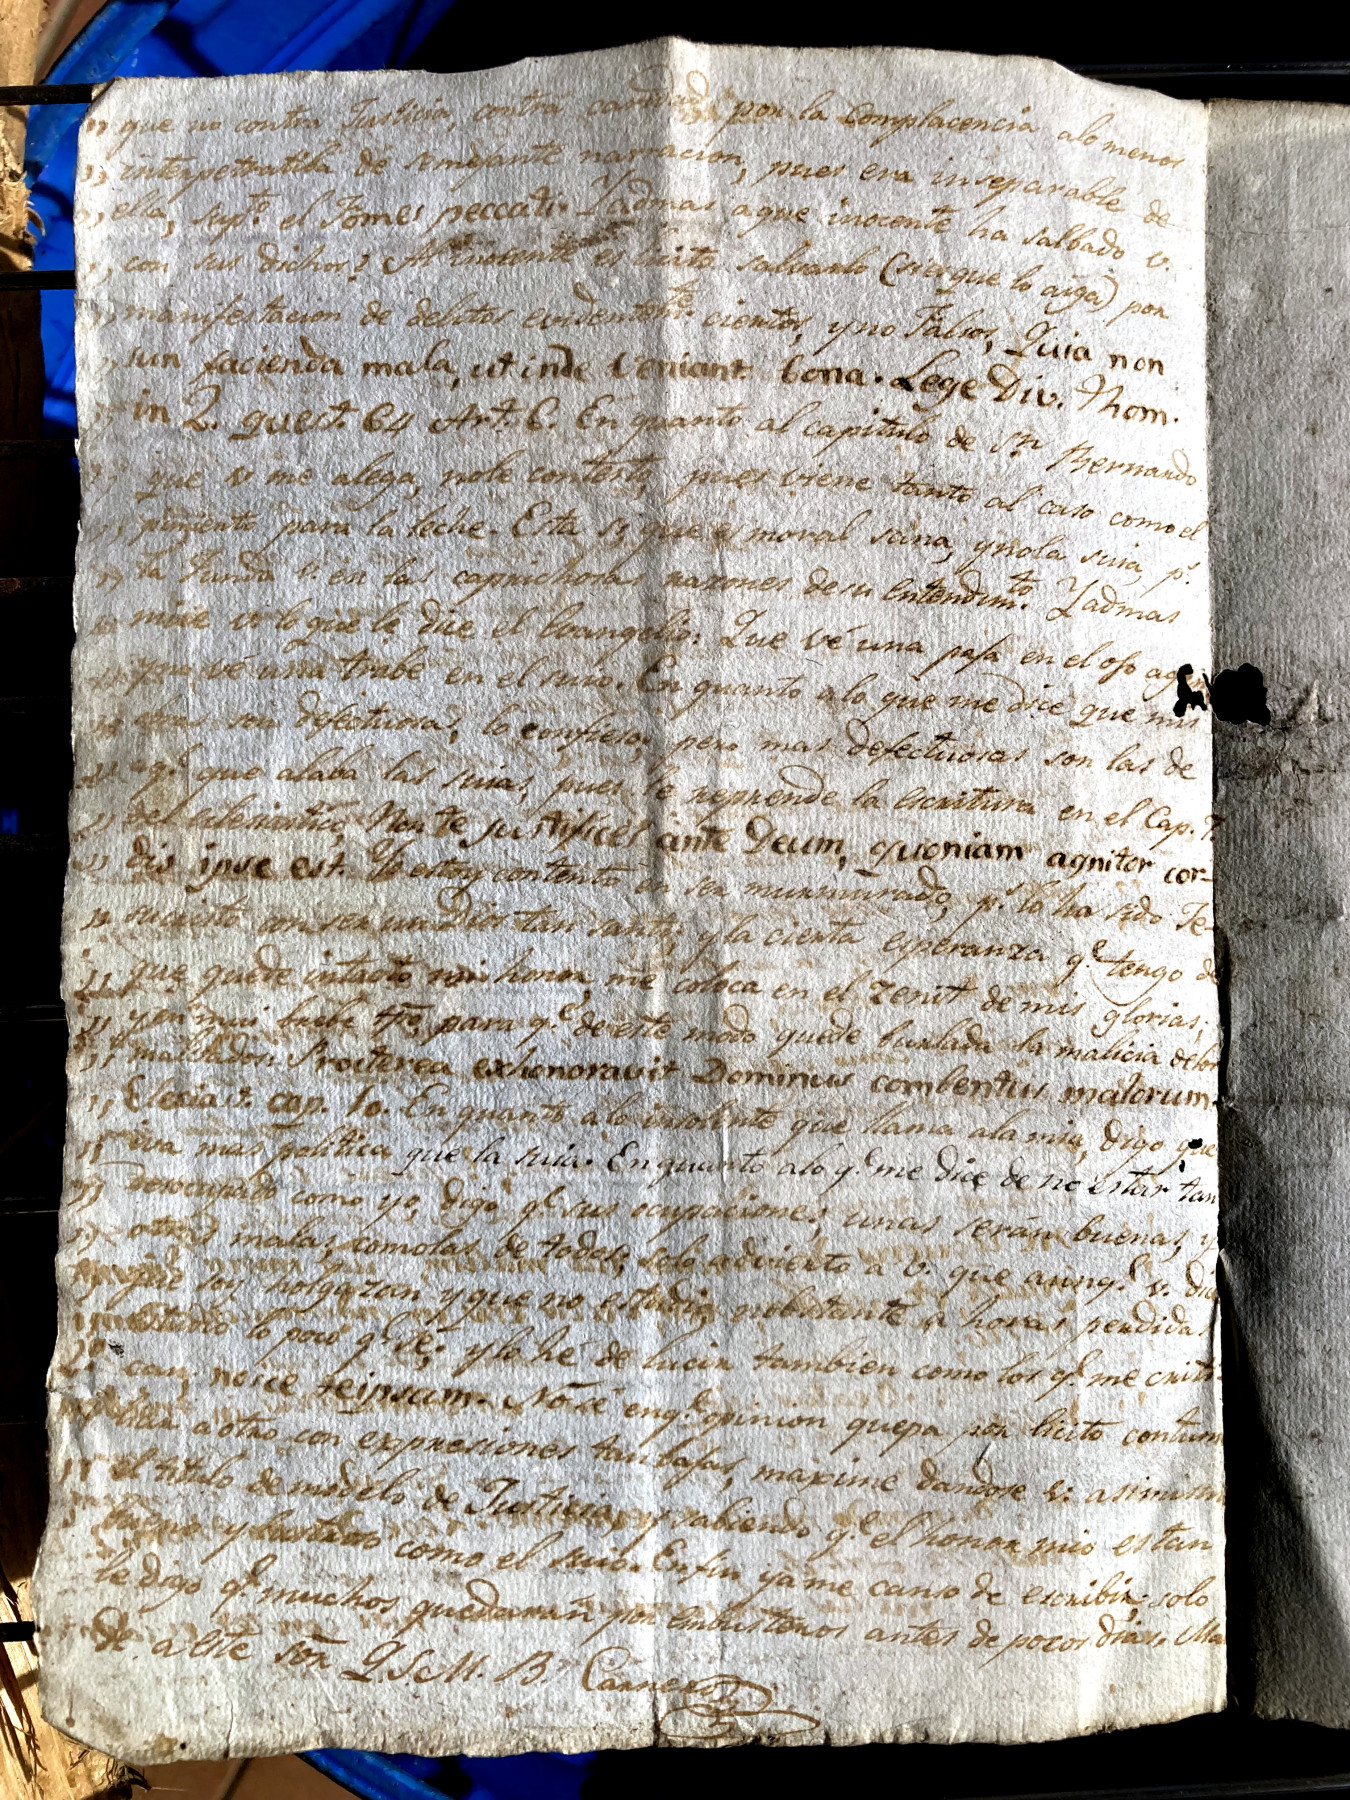 ,, que no contra Justicia, contra caridad por la Complacencia alo menos
,, interpetratiba de semejante narracion, pues era inseparable de
,, ella, supto. el fomes peccati. Yadmas aque inocente ha salbado v.
,, con sus dichos? Al inosente es licito salvarlo (siemque lo aiga) por
,, manifestacion de delitos ciertos, yno falsos, Quia non
,, sun facienda mala, ut inde veniant bona. Lege Div. Thom.
,, in 2. quest. 64 Art. 6. En quanto al capitulo de Sn. Bernardo
,, que v. me alega, nole contesto, pues viene tanto al caso como el
,, pimiento para la leche. Esta si que es moral sana, ynola suia, pr.
,, la funda v. en las caprichosas razones de su entendimto. Yadmas
mire v. lo que le dice el Evangelio: Que vé una paja en el ojo ageno
yno vé una trabe en el suio. En quanto a lo que me dice que mis
son defectuosas, lo confieso, pero mas defectuosas son las de
,, que alaba las suias, pues le reprende la escritura en el Cap. 7.
,, del eclesiastico, Non te justifices ante Deum, quoniam agnitor cor-
,, dis ipse est. Yo estoy contento en ser murmurado, pr. lo ha sido Je-
,, con ser un Dios tan santo, y la cierta esperanza qe. tengo de
,, que quede intacto mi honor, me coloca en el zenit de mis glorias;
,, y en mui brebe tpo. para qe. de este modo quede burlada la malicia delos
,, malbados: Procterea exhonoravit Dominus combentus malorum.
,, Eleciast. cap. 10. En quanto a lo insolente que llama ala mia, digo que
,, iva mas politica que la suia. En quanto alo qe. me dice de no estar tan
,, desocupado como yo, digo qe. sus ocupaciones, unas serán buenas, y
,, otras malas, como las de todos; solo advierto a v. que aunqe. v. dice
,, que soy holgazan y que no estudio, nobstante a horas perdidas
,, estudio lo poco qe. sé; y lo hé de lucir tambien como los qe. me criti-
,, can, nosce teipsum. No sé enqe. opinion quepa por licito contume-
aotro con expresiones tan bajas, maxime dandose v. asimismo
,, el titulo de modelo de Justicia, y sabiendo qe. el honor mio es tan
bueno y como el suio. Enfin ya me canso de escribir; solo
le digo qe. muchos quedarán por embusteros antes de pocos dias. Man-
de a este Sor. Q.S.M.B.